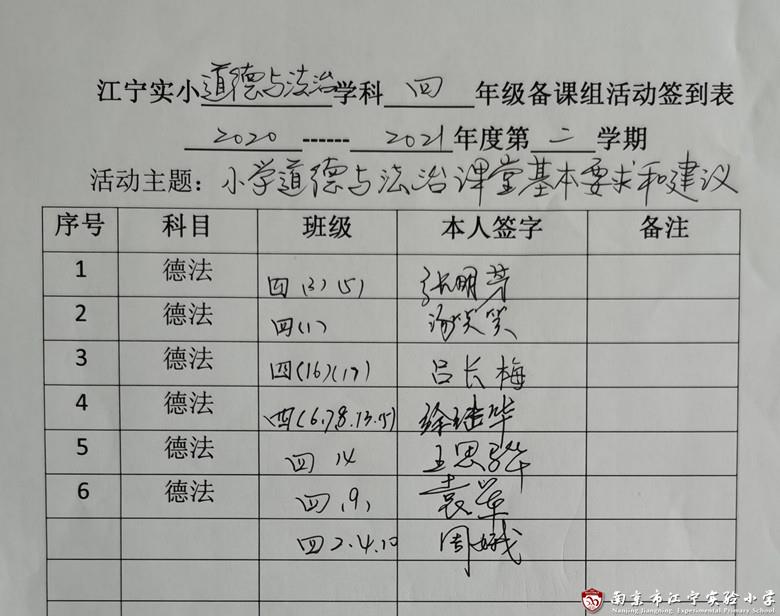 江宁实小道德与法治学科四年级备课组活动签到表
2020------2021年度第二学期
活动主题：小学道德与法治课堂基本要求和建议
序号 科目 班级 本人签字 备注
1 德法 四(3)(5) 张明芳
2 德法 四(1) 笑笑
3 德法 四(16)(17) 吕长梅
4 德法 四(6.7.8.13.15) 徐继华
5 德法 四 14 王思骅
6 德法 四(9) 袁华
四2.4.10 周娥
南京市江宁实验小学
Nanjing Jiangning Experimental Primary School